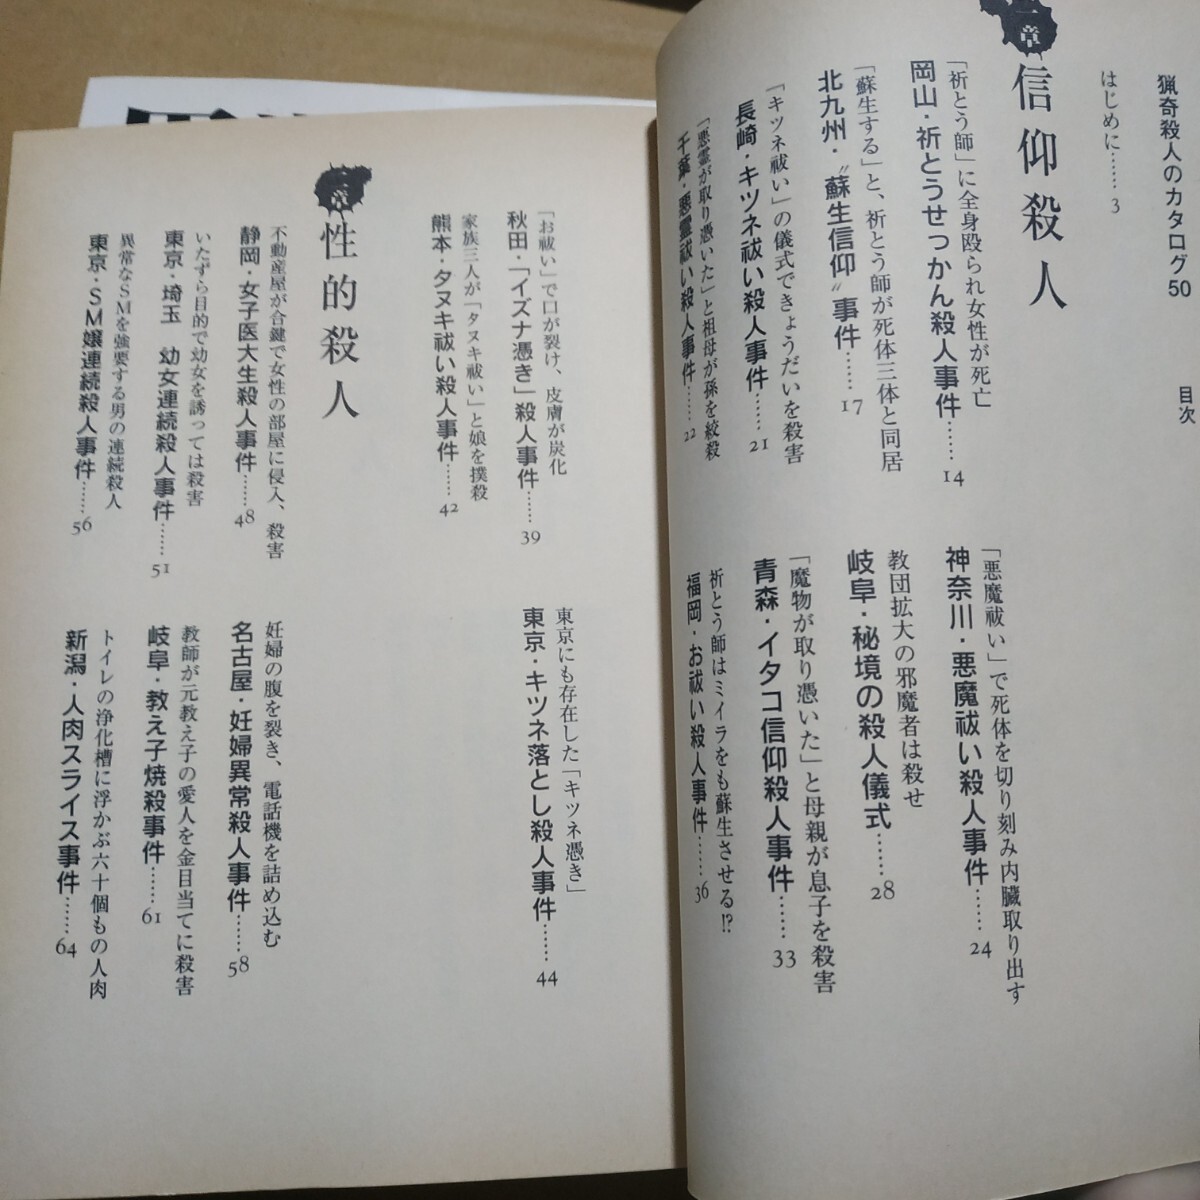 猟奇殺人のカタログ50　目次
はじめに……3
一章
信仰殺人
「祈とう師」に全身殴られ女性が死亡
岡山・祈とうせっかん殺人事件……14
「蘇生する」と、祈とう師が死体三体と同居
北九州・“蘇生信仰”事件……17
「キツネ祓い」の儀式できょうだいを殺害
長崎・キツネ祓い殺人事件……21
「悪霊が取り憑いた」と祖母が孫を絞殺
千葉・悪霊祓い殺人事件……22
「悪魔祓い」で死体を切り刻み内臓取り出す
神奈川・悪魔祓い殺人事件……24
教団拡大の邪魔者は殺せ
岐阜・秘境の殺人儀式……28
「魔物が取り憑いた」と母親が息子を殺害
青森・イタコ信仰殺人事件……33
祈とう師はミイラをも蘇生させる!?
福岡・お祓い殺人事件……36
「お祓い」で口が裂け、皮膚が炭化
秋田・「イズナ憑き」殺人事件……39
家族三人が「タヌキ祓い」と娘を撲殺
熊本・タヌキ祓い殺人事件……42
東京にも存在した「キツネ憑き」
東京・キツネ落とし殺人事件……44
二章
性的殺人
不動産屋が合鍵で女性の部屋に侵入、殺害
静岡・女子医大生殺人事件……48
いたずら目的で幼女を誘っては殺害
東京・埼玉　幼女連続殺人事件……51
異常なSMを強要する男の連続殺人
東京・SM嬢連続殺人事件……56
妊婦の腹を裂き、電話機を詰め込む
名古屋・妊婦異常殺人事件……58
教師が元教え子の愛人を金目当てに殺害
岐阜・教え子焼殺事件……61
トイレの浄化槽に浮かぶ六十個もの人肉
新潟・人肉スライス事件……64